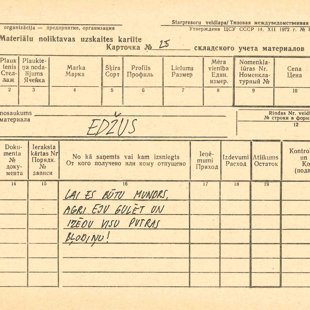 организация — предприятие, организация
Starpresoru veidlapa/Типовая междуведомственная
Утверждена ЦСУ СССР 14. XII 1972 г. №
Materiālu noliktavas uzskaites kartīte
Карточка № 25 складского учета материалов
Plauk
lenis
Стел-
лаж
Plaukta
nodalījums
Ячейка
Marka
Марка
Šķira
Сорт
Profils
Профиль
Lielums
Размер
Mēra
vienība
Един.
измер.
Nomenkla-
tūras Nr.
Номенклатур-
ный №
Cena
Цена
2 3 4 5 6 7 8 9 10
nosaukums
материала
EDŽUS
Rindas Nr. veidlapā
№ строки в форме
12
Dokumenta
№
документа
Ieraksta
kārtas Nr.
Порядк.
№
записи
No kā saņemts vai kam izsniegts
От кого получено или кому отпущено
Ieņēmumi
Приход
Izdevumi
Расход
Atlikums
Остаток
14 15 16 17 18 19 20
LAI ES BŪTU MUNDRS,
AGRI EJU GULĒT UN
IZĒDU VISU PUTRAS
BĻODIŅU!